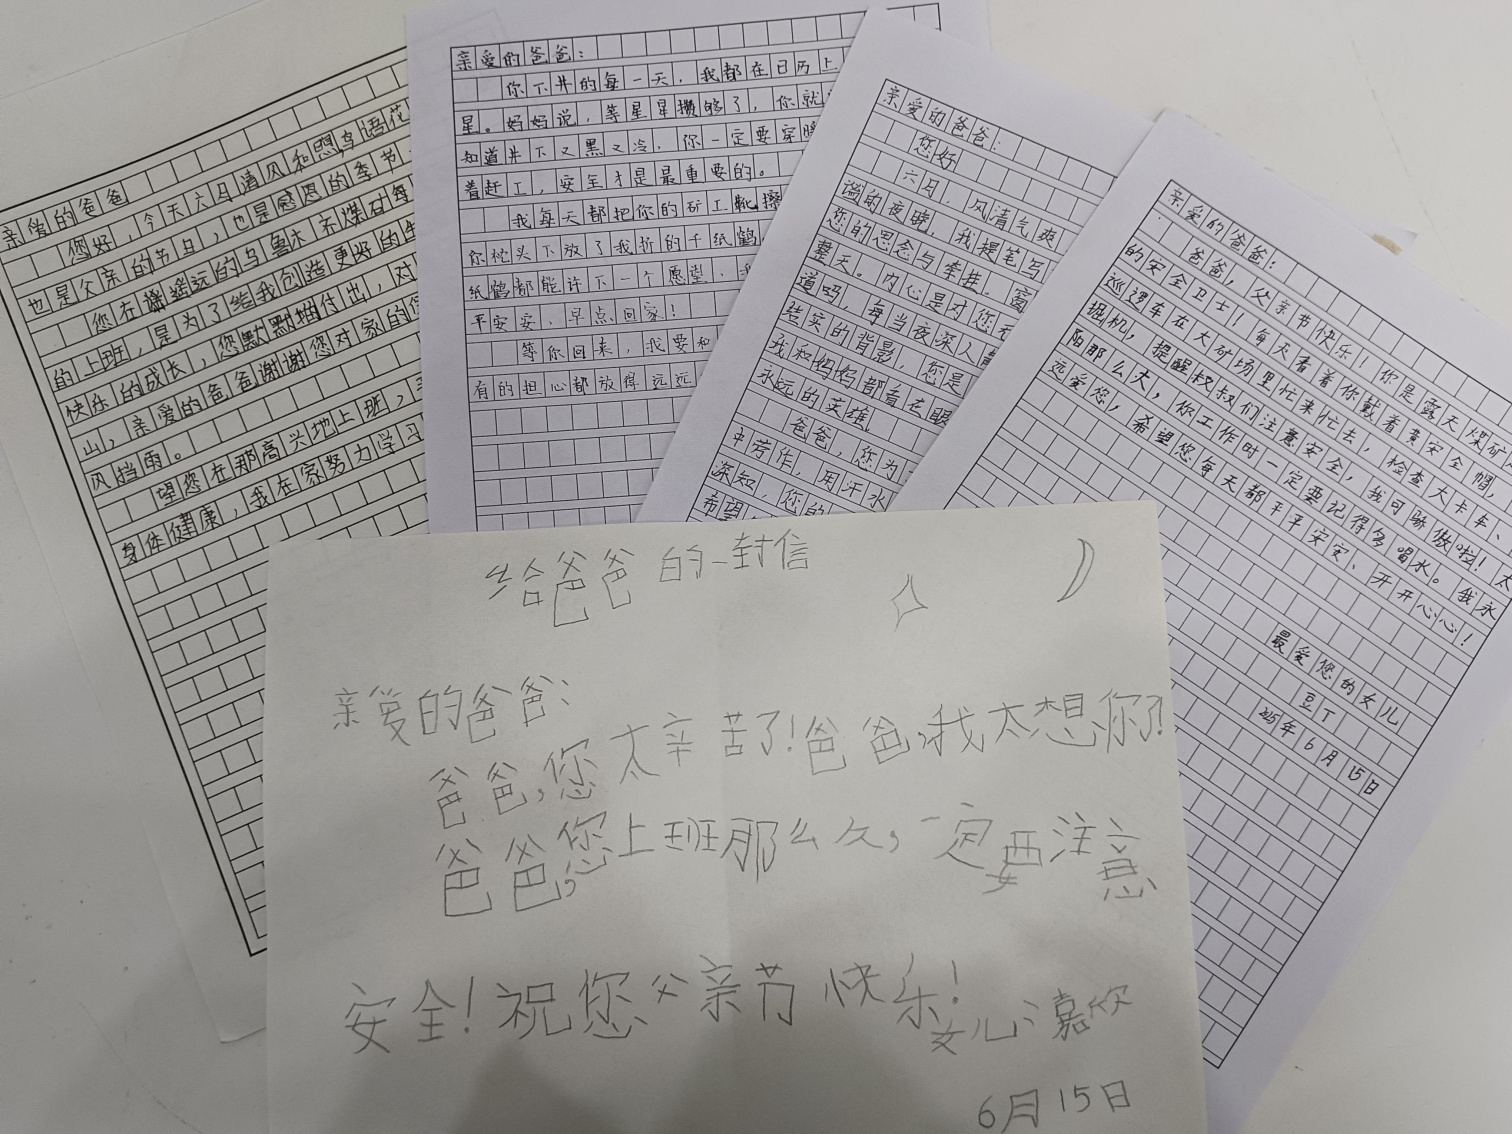 亲爱的爸爸
您好，今天六月清风和煦鸟语花
也是父亲的节日，也是感恩的季节
您在遥远的乌鲁木齐煤矿每
的上班，是为了给我创造更好的生
快乐的成长，您默默地付出，对
山，亲爱的爸爸谢谢您对家的
风挡雨。
望您在那高兴地上班，
身体健康，我在家努力学习
亲爱的爸爸：
你下井的每一天，我都在日历上
星。妈妈说，等星星攒够了，你就
知道井下又黑又冷，你一定要穿暖
着赶工，安全才是最重要的。
我每天都把你的矿工靴擦
你枕头下放了我折的千纸鹤
纸鹤都能许下一个愿望，
平安安、早点回家！
等你回来，我要和
有的担心都放得远远
亲爱的爸爸：
您好
六月，风清气爽
谧的夜晚，我提笔写
您的思念与牵挂。窗
整天。内心是对您无
道吗，每当夜深人静
结实的背影，您是
我和妈妈都看在眼
永远的英雄。
爸爸，您为
中劳作，用汗水
深知，您的
希望
亲爱的爸爸：
爸爸，父亲节快乐！你是露天煤矿
的安全卫士！每天看着你戴着黄安全帽，
巡逻车在大矿场里忙来忙去，检查大卡车、
掘机，提醒叔叔们注意安全，我可骄傲啦！太
阳那么大，你工作时一定要记得多喝水。我永
远爱您，希望您每天都平平安安、开开心心！
最爱您的女儿
豆丁
2025年6月15日
给爸爸的一封信
亲爱的爸爸：
爸爸，您太辛苦了！爸爸，我太想你了！
爸爸，您上班那么久，一定要注意
安全！祝您父亲节快乐！
女儿：嘉欣
6月15日